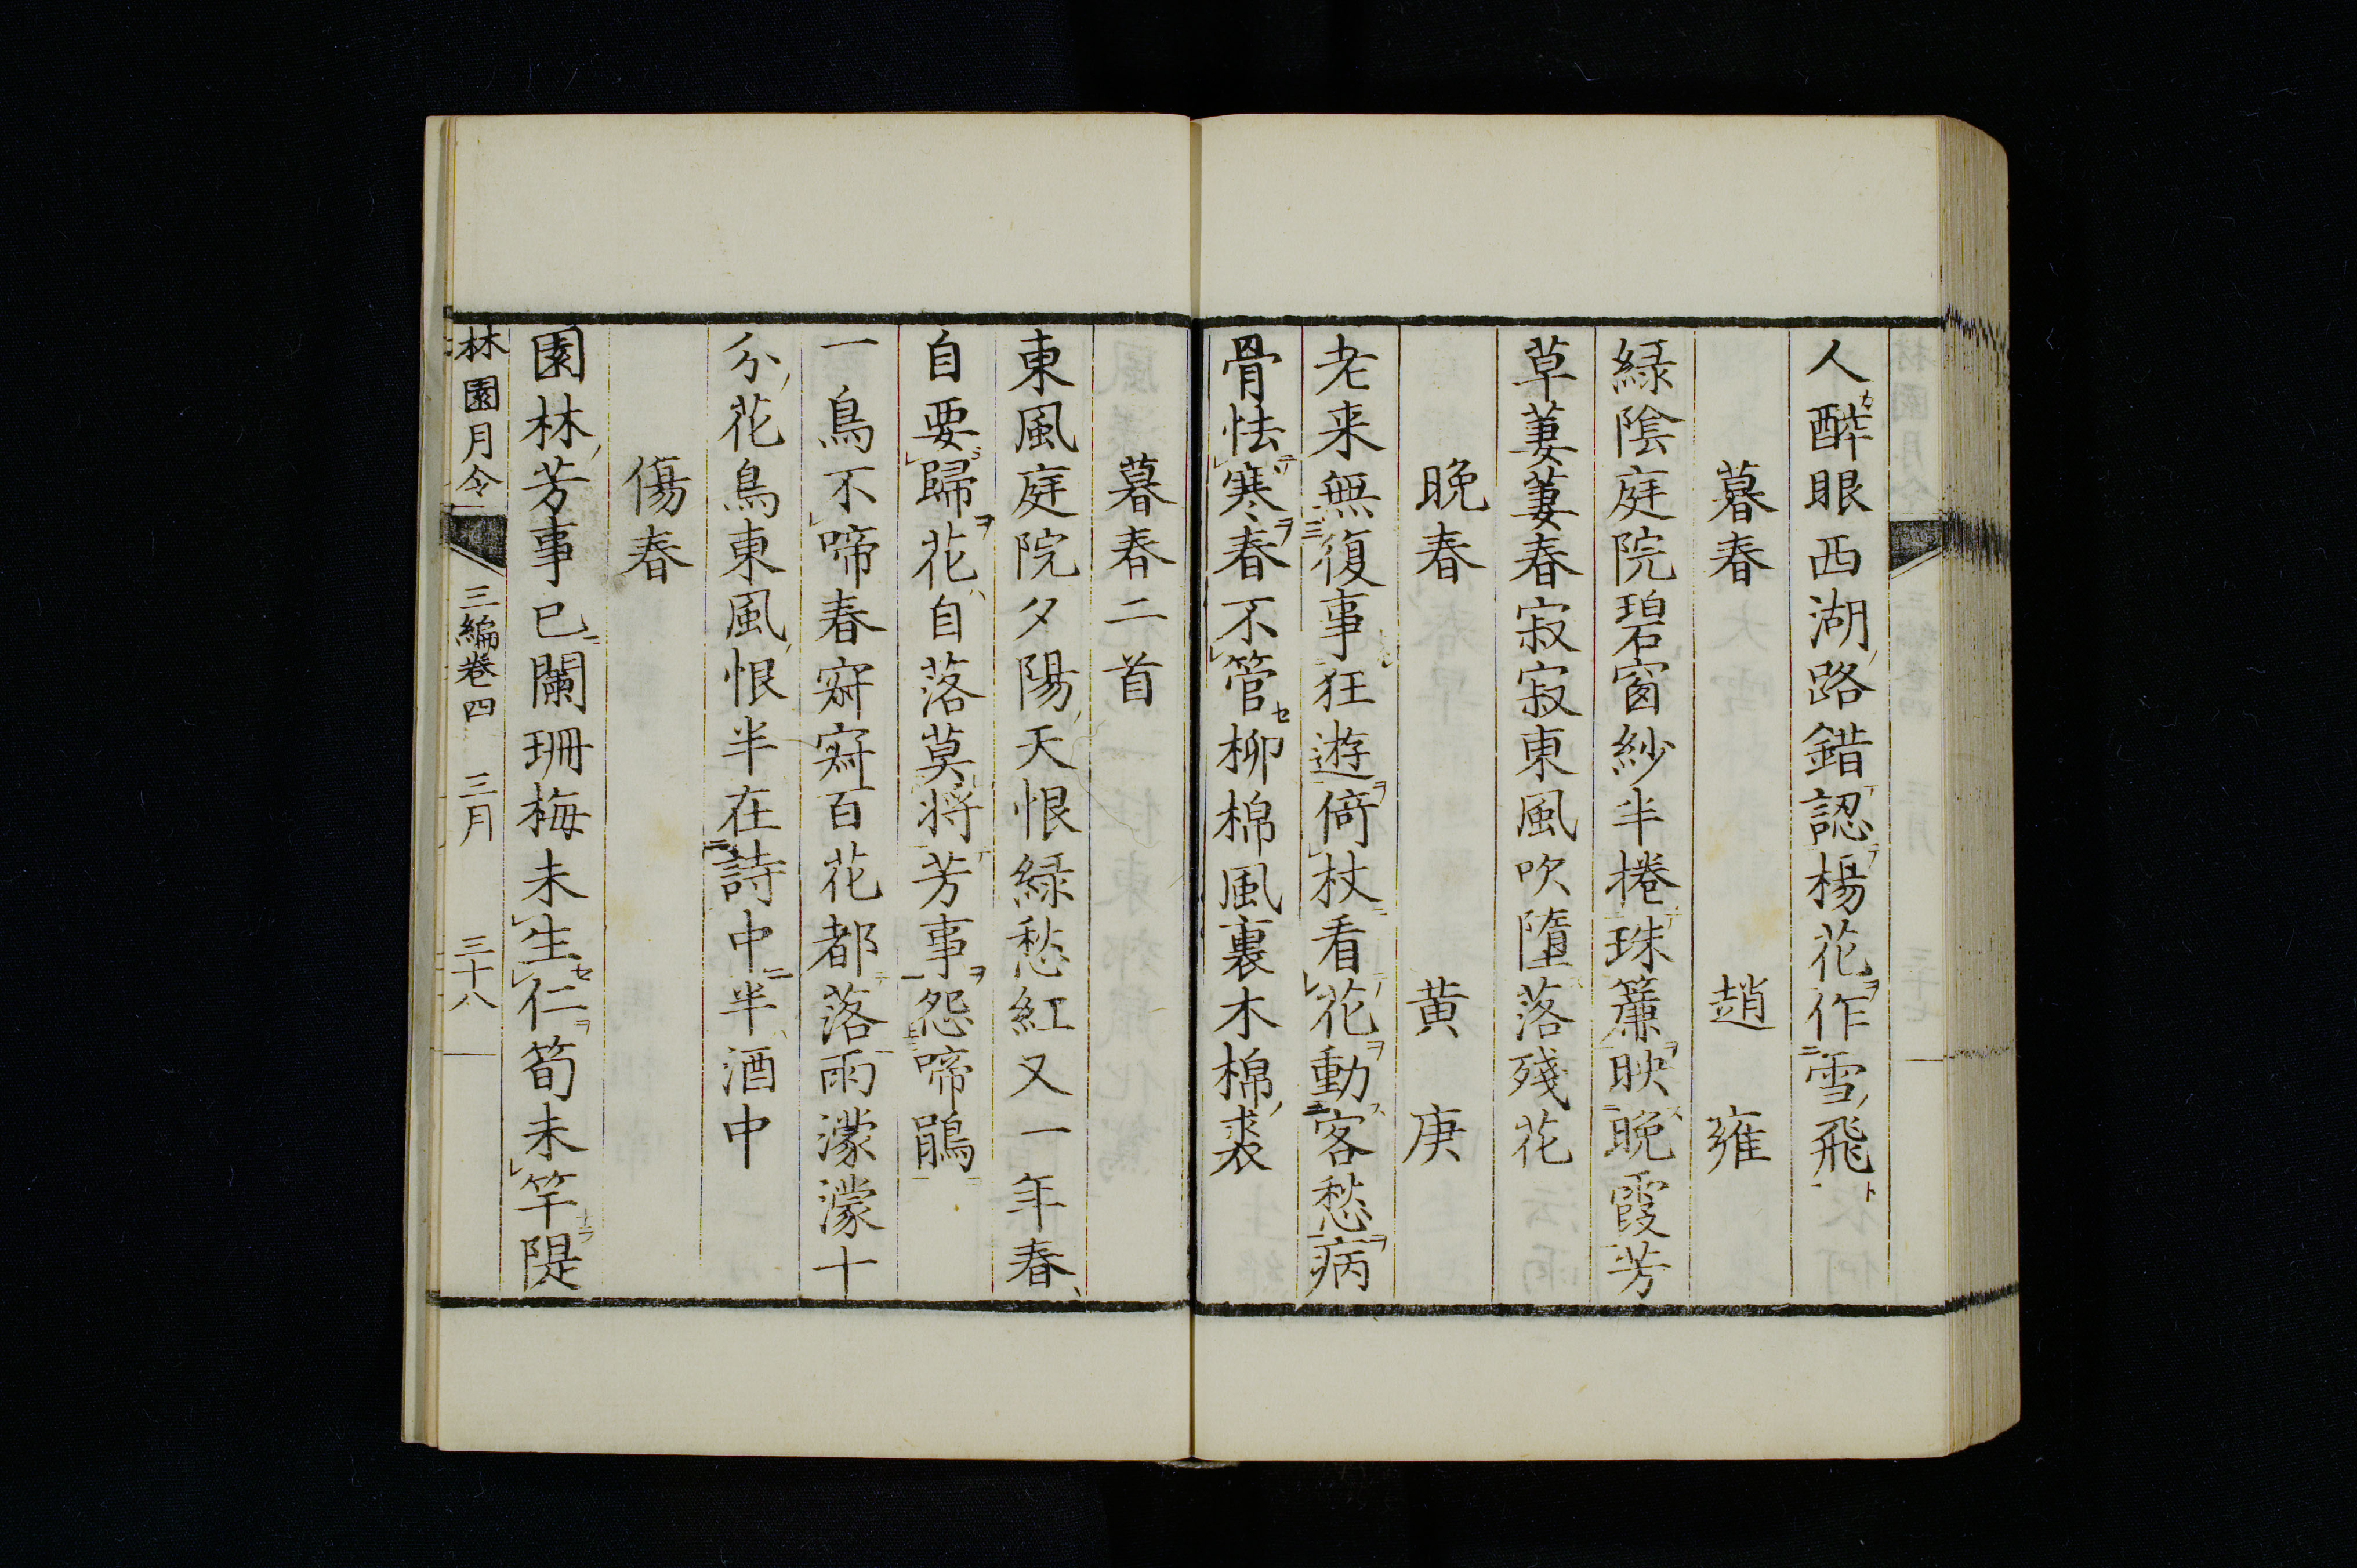 人醉眼西湖路錯認楊花作雪飛
暮春 趙雍
緑陰庭院碧窗紗半捲珠簾映晩霞芳
草萋萋春寂寂東風吹墮落殘花
晩春 黄庚
老来無復事狂遊倚杖看花動客愁病
骨怯寒春不管柳棉風裏木棉裘
暮春二首
東風庭院夕陽天恨緑愁紅又一年春
自要歸花自落莫将芳事怨啼鵑
一鳥不啼春寂寂百花都落雨濛濛十
分花鳥東風恨半在詩中半酒中
傷春
園林芳事已闌珊梅未生仁筍未竿隄
林園月令 三編巻四 三月 三十八